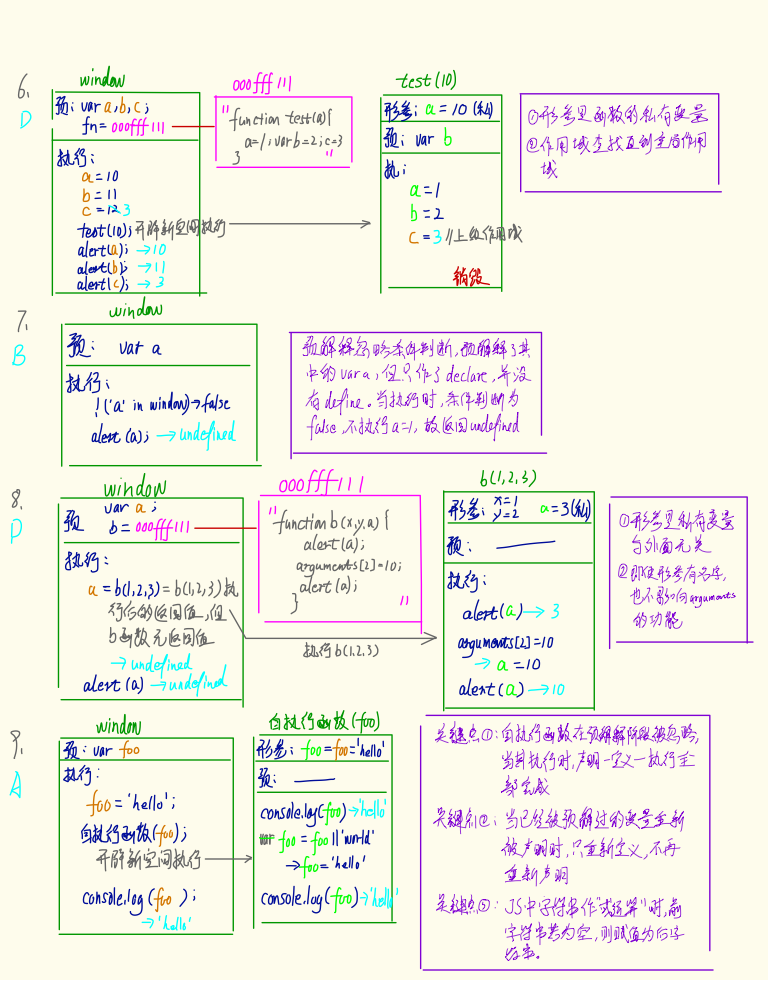 6.
D
window
预: var a, b, c;
fn = 000fff111
执行:
a = 10
b = 11
c = 12 3
test(10); 开辟新空间执行
alert(a); → 10
alert(b); → 11
alert(c); → 3
000fff111
"function test(a){
a=1; var b=2; c=3
} "
test(10)
形参: a = 10 (私)
预: var b
执:
a = 1
b = 2
c = 3 //上级作用域
销毁
①形参是函数的私有变量
②作用域查找直到全局作用
域
7.
B
window
预: var a
执行:
!('a' in window)→false
alert(a); → undefined
预解释忽略条件判断,预解释了其
中的var a,但只作了declare,并没
有define。当执行时,条件判断为
false,不执行a=1,故返回undefined
8.
D
window
预 var a;
b = 000fff111
执行:
a = b(1,2,3) = b(1,2,3)执
行后的返回值,但
b函数无返回值
→ undefined
alert(a) → undefined
000fff111
"function b(x,y,a){
alert(a);
arguments[2]=10;
alert(a);
} "
执行b(1,2,3)
b(1,2,3)
形参: x=1 y=2 a=3(私)
预: ——
执行:
alert(a) → 3
arguments[2]=10
→ a = 10
alert(a) → 10
①形参是私有变量
与外面无关
②即使形参有名字,
也不影响arguments
的功能
9.
A
window
预: var foo
执行:
foo = 'hello';
自执行函数(foo);
开辟新空间执行
console.log(foo);
→ 'hello'
自执行函数(foo)
形参: foo = foo = 'hello'
预: ——
console.log(foo) → 'hello'
var foo = foo || 'world'
→ foo = 'hello'
console.log(foo) → 'hello'
关键点①: 自执行函数在预解释阶段被忽略,
当其执行时,声明一定义一执行全
部完成
关键点②: 当已经被预解过的变量重新
被声明时,只重新定义,不再
重新声明
关键点③: JS中字符串作"或运算"时,前
字符串若为空,则赋值为后字
符串。